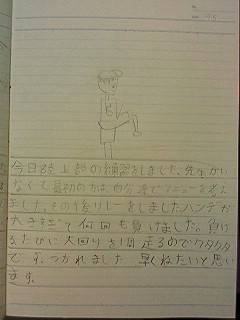 今日陸上部の練習をしました。先生がい
なくて最初の方は自分達でメニューを考え
ました。その後リレーをしましたハンデが
大きすぎて何回も負けました。負け
るたびに大回りを1周走るのでクタクタ
で つかれました 早くねたいと思い
ます。